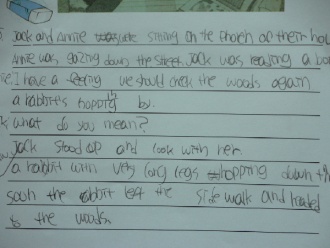 Jack and Annie sitting on the proch of their hou
Annie was gazing down the street. Jack was reading a bo
ie. I have a feeling we should check the woods again
a rabbit's hopping by.
k. what do you mean?
Jack stood up and look with her.
a rabbit with very long legs hopping down th
soon the rabbit left the side walk and headed
the woods.